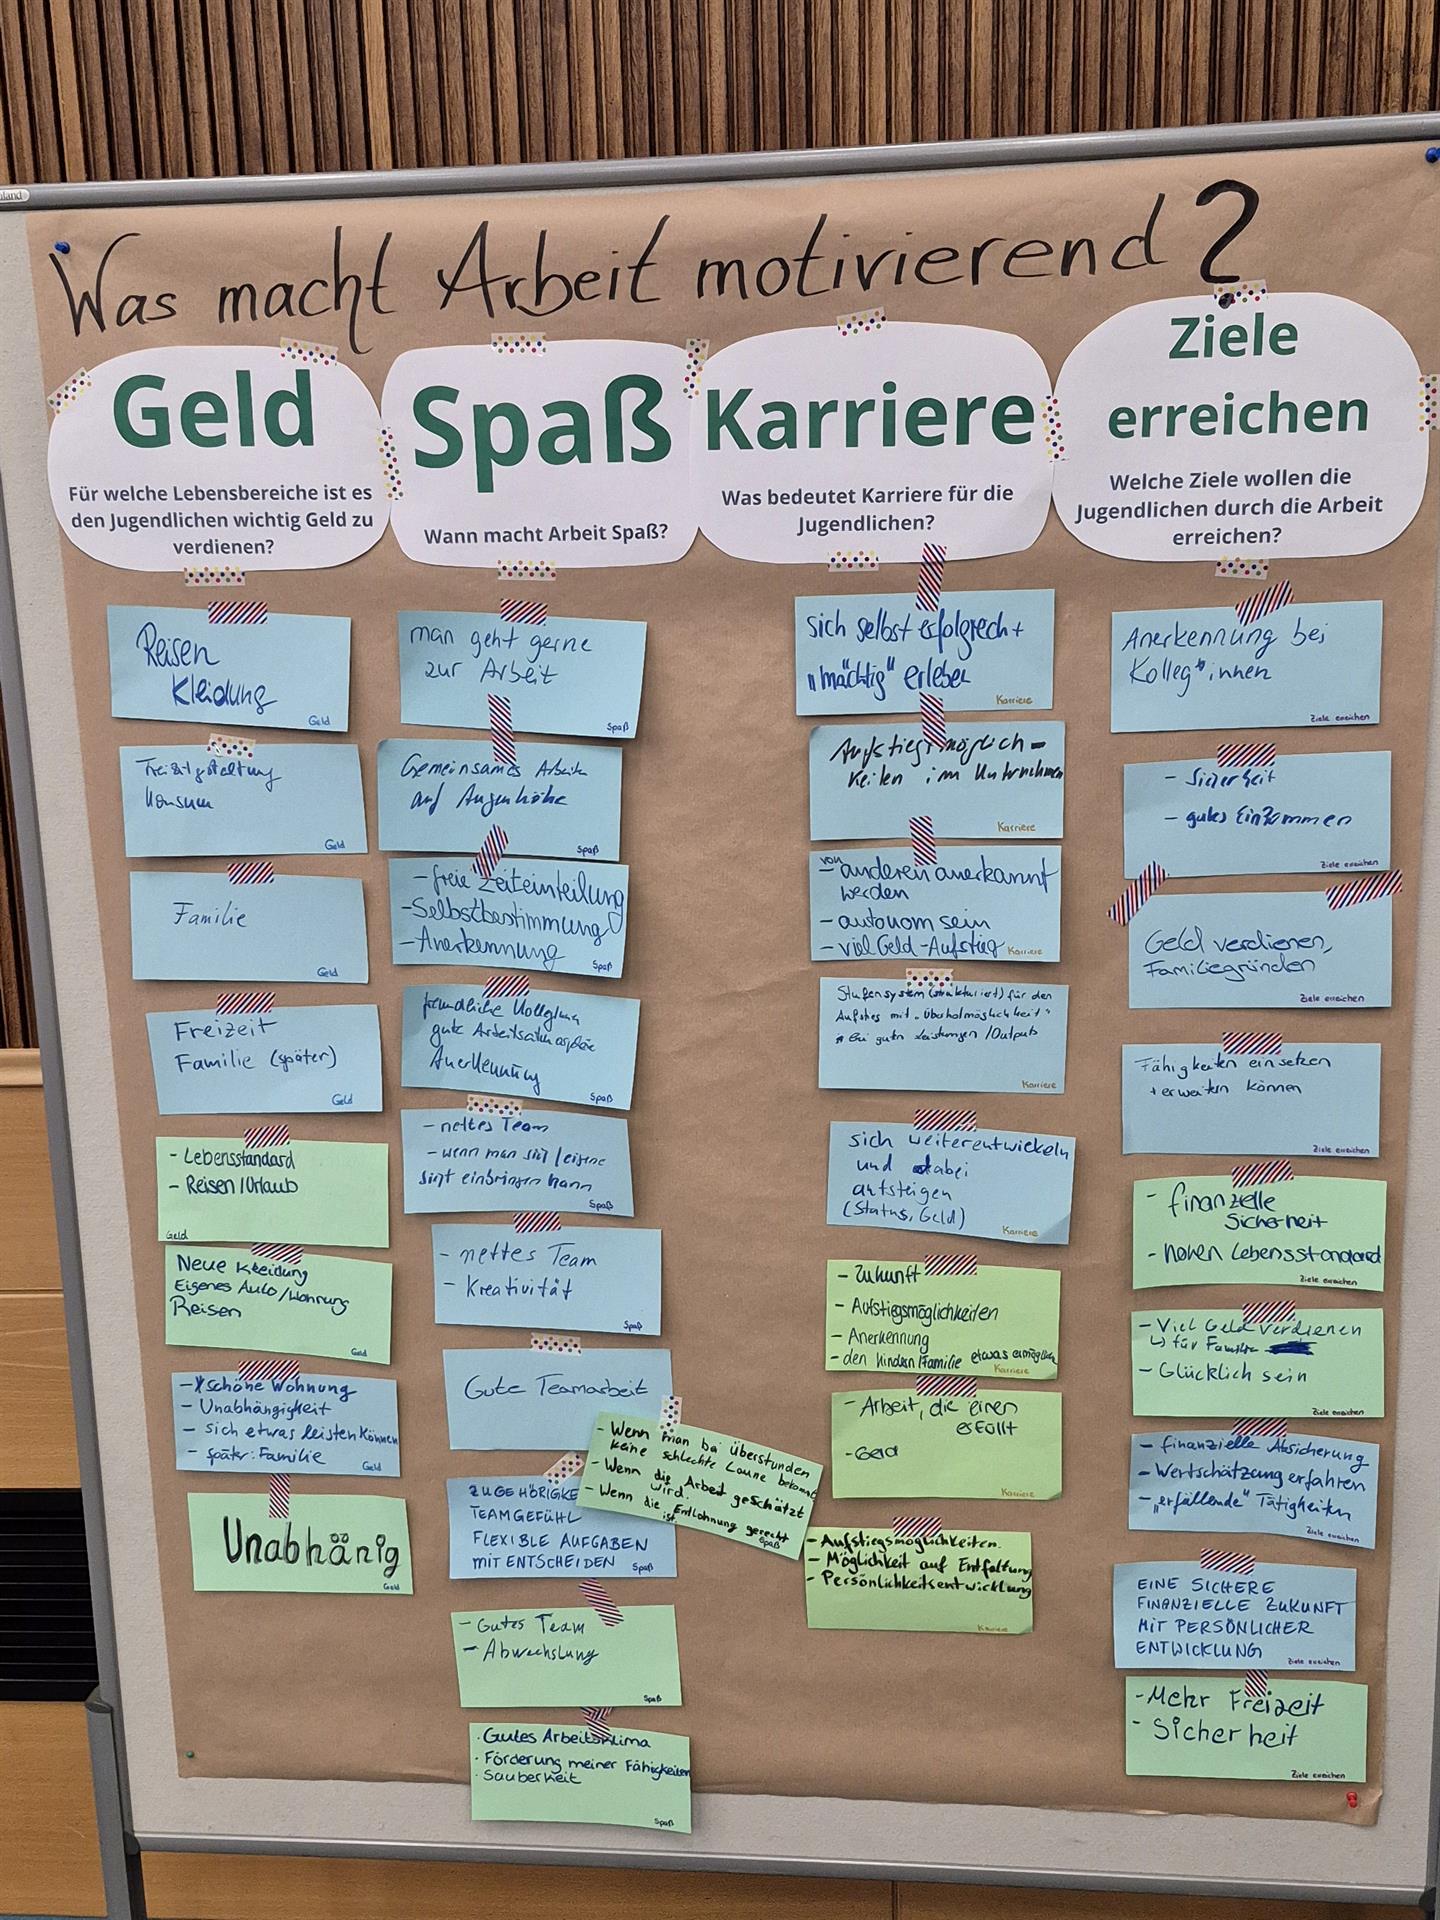 Was macht Arbeit motivierend?
Geld
Für welche Lebensbereiche ist es
den Jugendlichen wichtig Geld zu
verdienen?
Reisen
Kleidung
Geld
Freizeitgestaltung
Konsum
Geld
Familie
Geld
Freizeit
Familie (später)
Geld
- Lebensstandard
- Reisen/Urlaub
Geld
Neue Kleidung
Eigenes Auto/Wohnung
Reisen
Geld
- schöne Wohnung
- Unabhängigkeit
- sich etwas leisten können
- später: Familie
Geld
Unabhänig
Geld
Spaß
Wann macht Arbeit Spaß?
man geht gerne
zur Arbeit
Spaß
Gemeinsames Arbeiten
auf Augenhöhe
Spaß
- freie Zeiteinteilung
- Selbstbestimmung
- Anerkennung
Spaß
freundliche Kolleg
gute Arbeitsatmosphäre
Anerkennung
Spaß
- nettes Team
- wenn man sich/eigene
einbringen kann
Spaß
- nettes Team
- Kreativität
Spaß
Gute Teamarbeit
- Wenn man bei Überstunden
keine schlechte Laune bekommt
- Wenn die Arbeit geschätzt
wird.
- Wenn die Entlohnung gerecht
ist.
Spaß
ZUGEHÖRIGKE
TEAMGEFÜHL
FLEXIBLE AUFGABEN
MIT ENTSCHEIDEN
Spaß
- Gutes Team
- Abwechslung
Spaß
· Gutes Arbeitsklima
· Förderung meiner Fähigkeiten
· Sauberkeit
Spaß
Karriere
Was bedeutet Karriere für die
Jugendlichen?
sich selbst erfolgreich +
„mächtig" erleben
Karriere
Aufstiegsmöglich-
keiten im Unternehmen
Karriere
- von anderen anerkannt
werden
- autonom sein
- viel Geld - Aufstieg
Karriere
Stufensystem (strukturiert) für den
Aufstieg mit „Überholmöglichkeit"
bei guten Leistungen/Outputs
Karriere
sich weiterentwickeln
und dabei
aufsteigen
(Status, Geld)
Karriere
- Zukunft
- Aufstiegsmöglichkeiten
- Anerkennung
- den Kindern/Familie etwas ermöglich
Karriere
- Arbeit, die einen
erfüllt
- Geld
Karriere
- Aufstiegsmöglichkeiten.
- Möglichkeit auf Entfaltung
- Persönlichkeitsentwicklung
Karriere
Ziele
erreichen
Welche Ziele wollen die
Jugendlichen durch die Arbeit
erreichen?
Anerkennung bei
Kolleg*innen
Ziele erreichen
- Sicherheit
- gutes Einkommen
Ziele erreichen
Geld verdienen,
Familie gründen
Ziele erreichen
Fähigkeiten einsetzen
+ erweitern können
Ziele erreichen
- finanzielle
Sicherheit
- hohen Lebensstandard
Ziele erreichen
- Viel Geld verdienen
↳ für Familie
- Glücklich sein
Ziele erreichen
- finanzielle Absicherung
- Wertschätzung erfahren
- „erfüllende" Tätigkeiten
Ziele erreichen
EINE SICHERE
FINANZIELLE ZUKUNFT
MIT PERSÖNLICHER
ENTWICKLUNG
Ziele erreichen
- Mehr Freizeit
- Sicherheit
Ziele erreichen